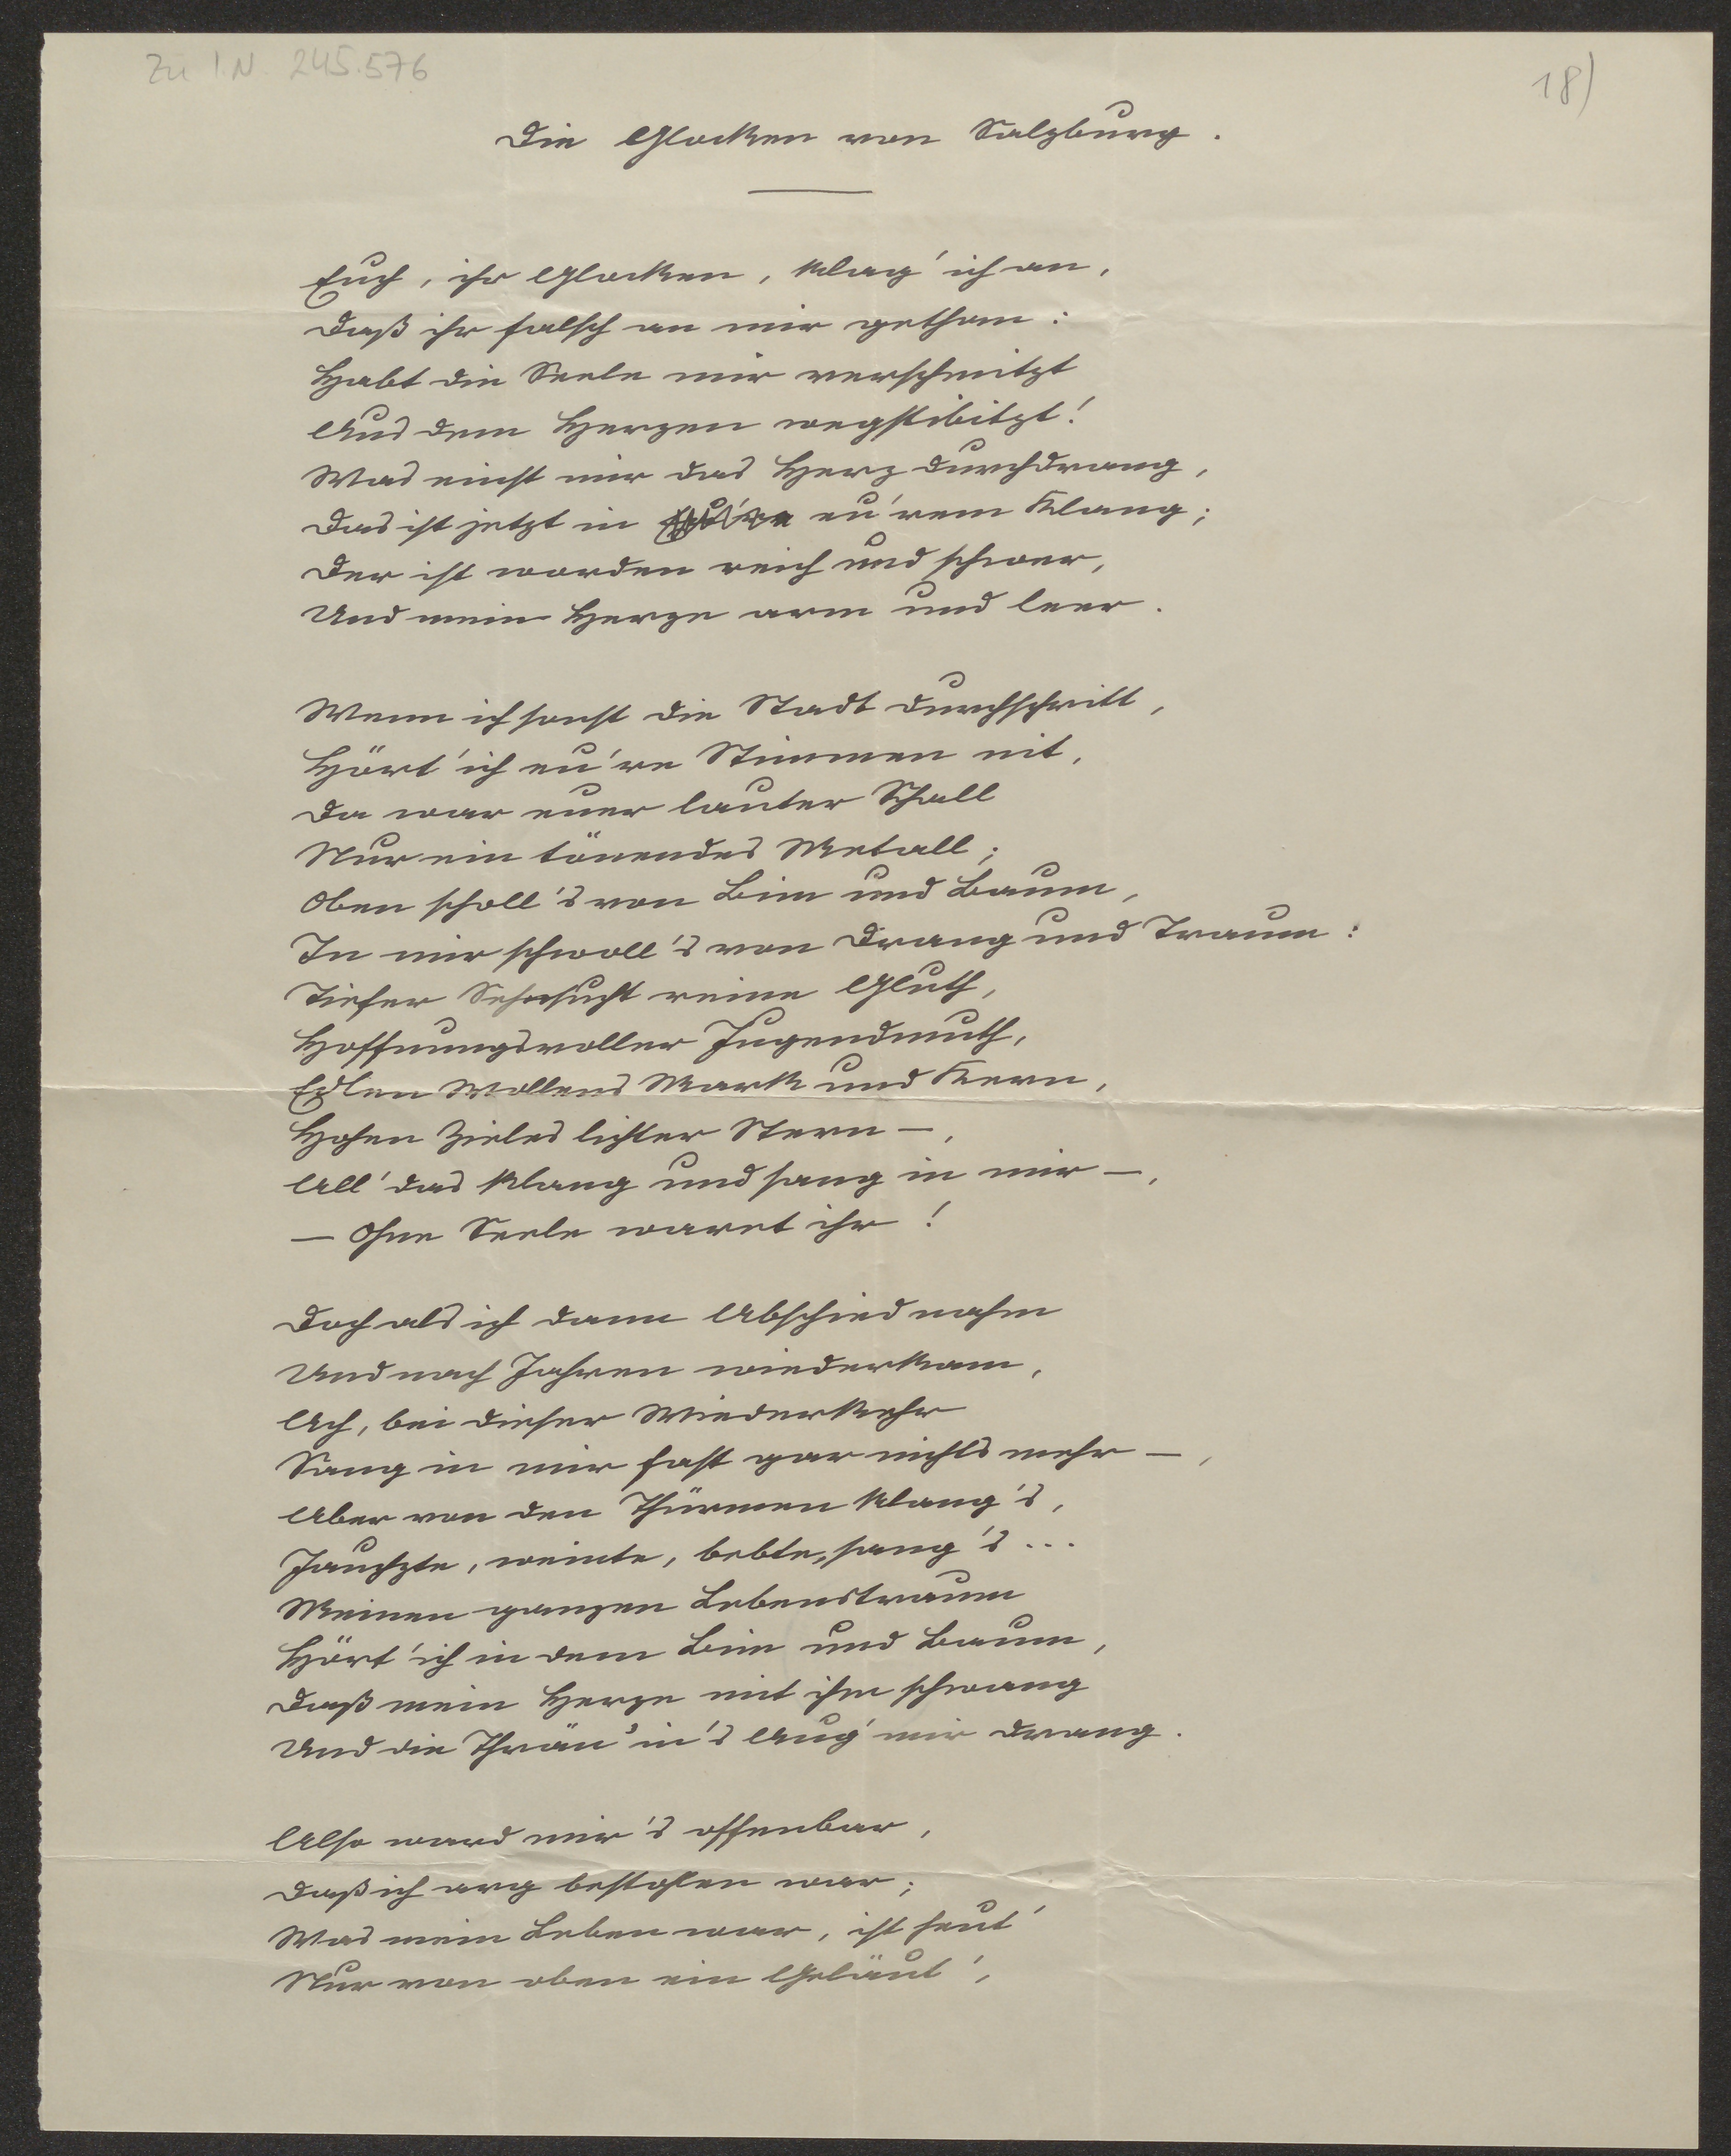 Zu I.N. 245.576
18)
Die Glocken von Salzburg.
Euch, ihr Glocken, klag' ich an,
Daß ihr falsch an mir gethan:
Habt die Seele mir verschmitzt
Aus dem Herzen wegstibitzt!
Was einst mir das Herz durchdrang,
Das ist jetzt in eu'rem Klang;
Der ist worden reich und schwer,
Und mein Herze arm und leer.
Wenn ich sonst die Stadt durchschritt,
Hört' ich eu're Stimmen nit,
Da war euer lauter Schall
Nur ein tönendes Metall;
Oben scholl's von Bim und Baum,
In mir schwoll's von Drang und Traum:
Tiefer Sehnsucht reine Gluth,
Hoffnungsvoller Jugendmuth,
Edlen Wollens Mark und Kern,
Hohen Zieles lichter Stern –,
All' das klang und sang in mir –,
– Ohne Seele waret ihr!
Doch als ich dann Abschied nahm
Und nach Jahren wiederkam,
Ach, bei dieser Wiederkehr
Sang in mir fast gar nichts mehr –,
Aber von den Thürmen klang's,
Jauchzte, weinte, bebte, sang's...
Meinen ganzen Lebenstraum
Hört' ich in dem Bim und Baum,
Daß mein Herze mit ihm schwang
Und die Thrän' in's Aug' mir drang.
Also ward mir's offenbar,
Daß ich arg bestohlen war;
Was mein Leben war, ist heut'
Nur von oben ein Geläut',